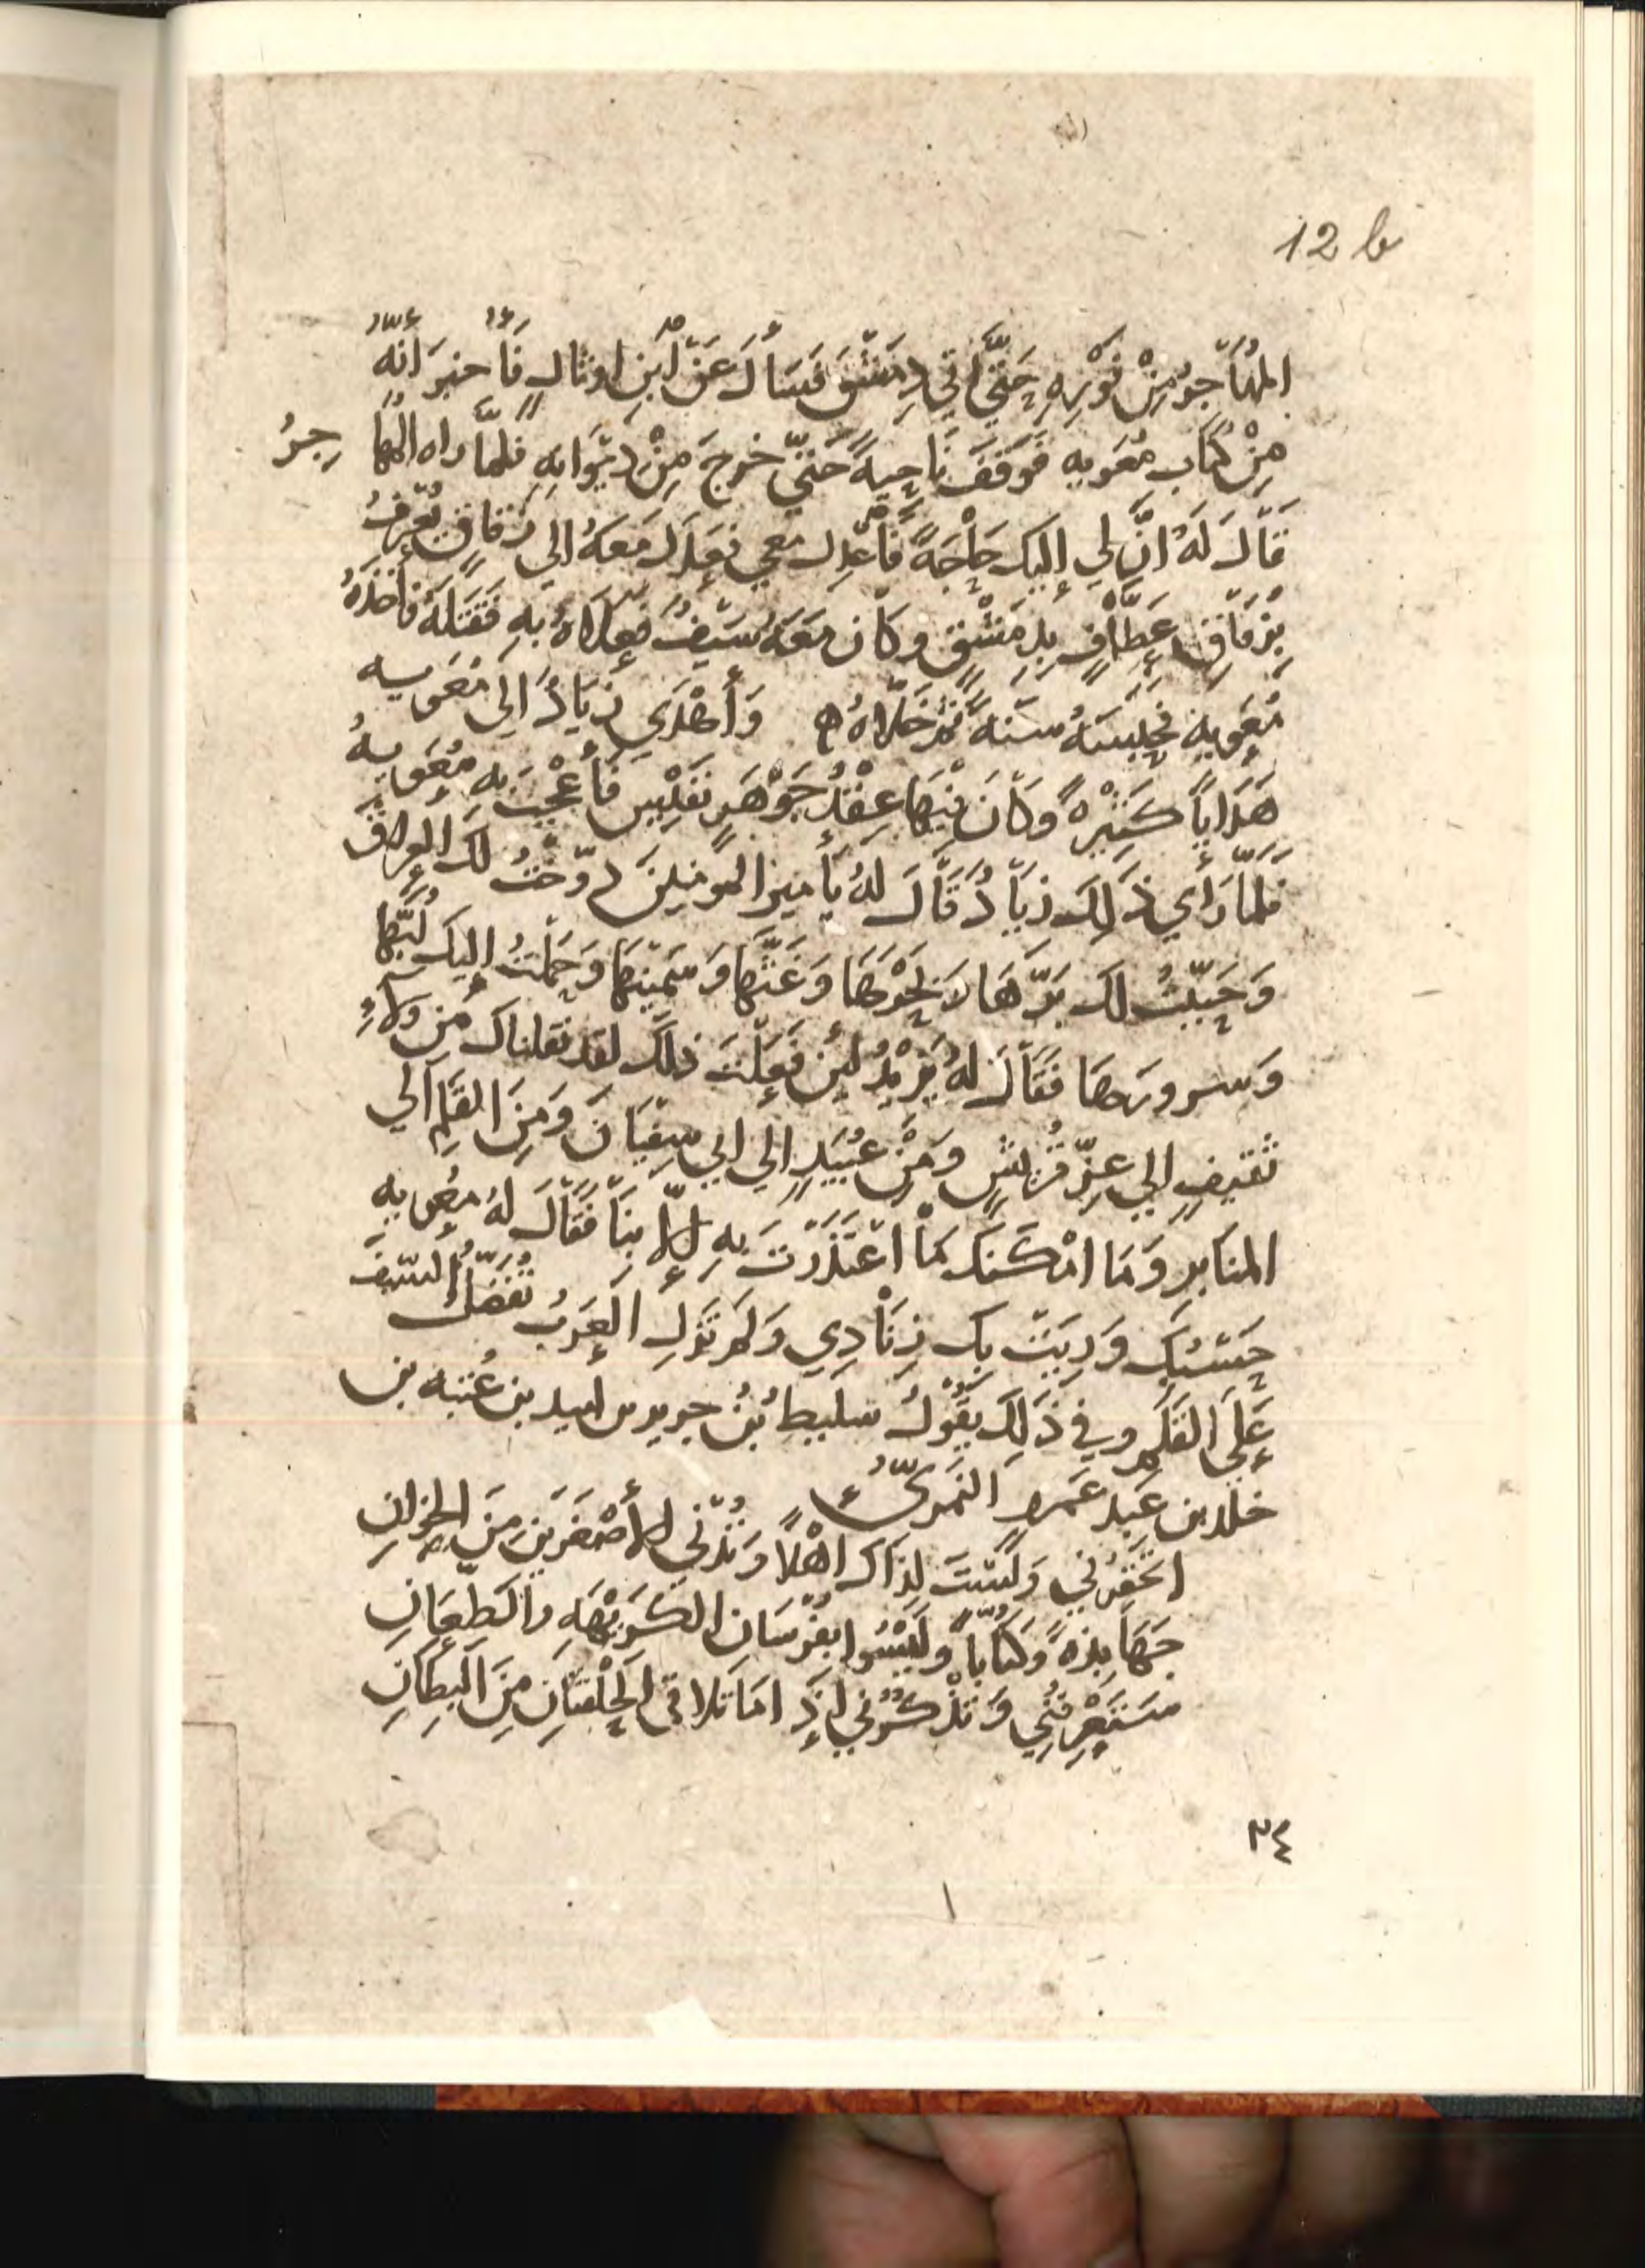 12 b
المُهَاجِرُ مِنْ فَوْرِهِ حَتَّى اتي دِمَشْقَ فَسَأَلَ عَنْ ابْنِ اوثالٍ فَأُخبِرَ أَنَّهُ
مِنْ كُتَّابِ مُعَوِيه فَوَقَفَ نَاحِيةً حَتّي خَرجَ مِنْ دِيوَانِهِ فَلمَّا راه المُهَاجِرُ
قَالَ لَهُ انَّ لِي إليك حَاجَةً فَاعْدِل معي فعَدَلَ مَعَهُ الي زقاقٍ يُعْرَفُ
بِزقَاقِ عَطَّافٍ بِدِمَشْقٍ وكَان مَعَهُ سَيْفٌ فَعَلَاهُ بِهِ فَقَتَلَهُ فأخَذَهُ
مُعَوِيه فحَبَسَهُ سَنَةً ثمّ خَلَّاهُ ه وَأَهْدَي زيَادٌ الي مُعَوِيه
هَدَايَا كَثِيْرةً وَكَانَ فِيْهَا عِقْدُ جَوْهَرٍ نَفَيْسٍ فَأُعْجِبَ بِه مُعَوِيهُ
فَلَمَّا رَأي ذَلِكَ زيَادٌ قَالَ لَهُ يَا أميرَ المومنِينَ دوّختُ لكَ العِراقَ
وَجَبَيْتُ لكَ بَرَّهَا لَا بَحْرهَا وَغَثَّها وَسَمِيْنَهَا وَحَمَلْتُ إليك لُبَّهَا
وَسرورَهَا فَقَالَ لَهُ يَزِيْدُ لَئِن فَعَلْتَ ذلكَ لقد نقلناك مِن وَلاءِ
ثَقيفٍ الي عِزِّ قُرَيْشٍ وَمِنْ عُبَيْدٍ الي ابي سفيَانَ وَمِنَ القَلَمِ الي
المنابرِ وَمَا امْكَنَكَ مَا اعْتَذَرْتَ بِهِ إلَّا بِنَا فَقَالَ لَهُ معُويه
حَسْبُكَ وَرِيَتْ بِكَ زنَادِي وَلَم تَزَلِ العَرَبُ تُفَضِّلُ السَّيْفَ
عَلَي القَلَمِ وفي ذَلِكَ يَقُوْلُ سَليطُ بْنُ جرير بن اسيد بن عُتبه بن
خلد بن عَبد عَمرٍو النَمَرِيُّ
اتَحقِرُني وَلَسْتَ لِذَاك اهْلاً وَتُدْني الأَصْغَرَينِ مِنَ الخِوانِ
جَهَابِذةً وَكُتَّاباً وَلَيْسُوا بفُرْسَانِ الكَرِيْهَةِ والطِّعَانِ
سَتَعْرِفُنِي وَتذكُرُني إذَا مَا تلاقي الحَلْقَتَانِ مِنَ البِطَانِ
٣٤